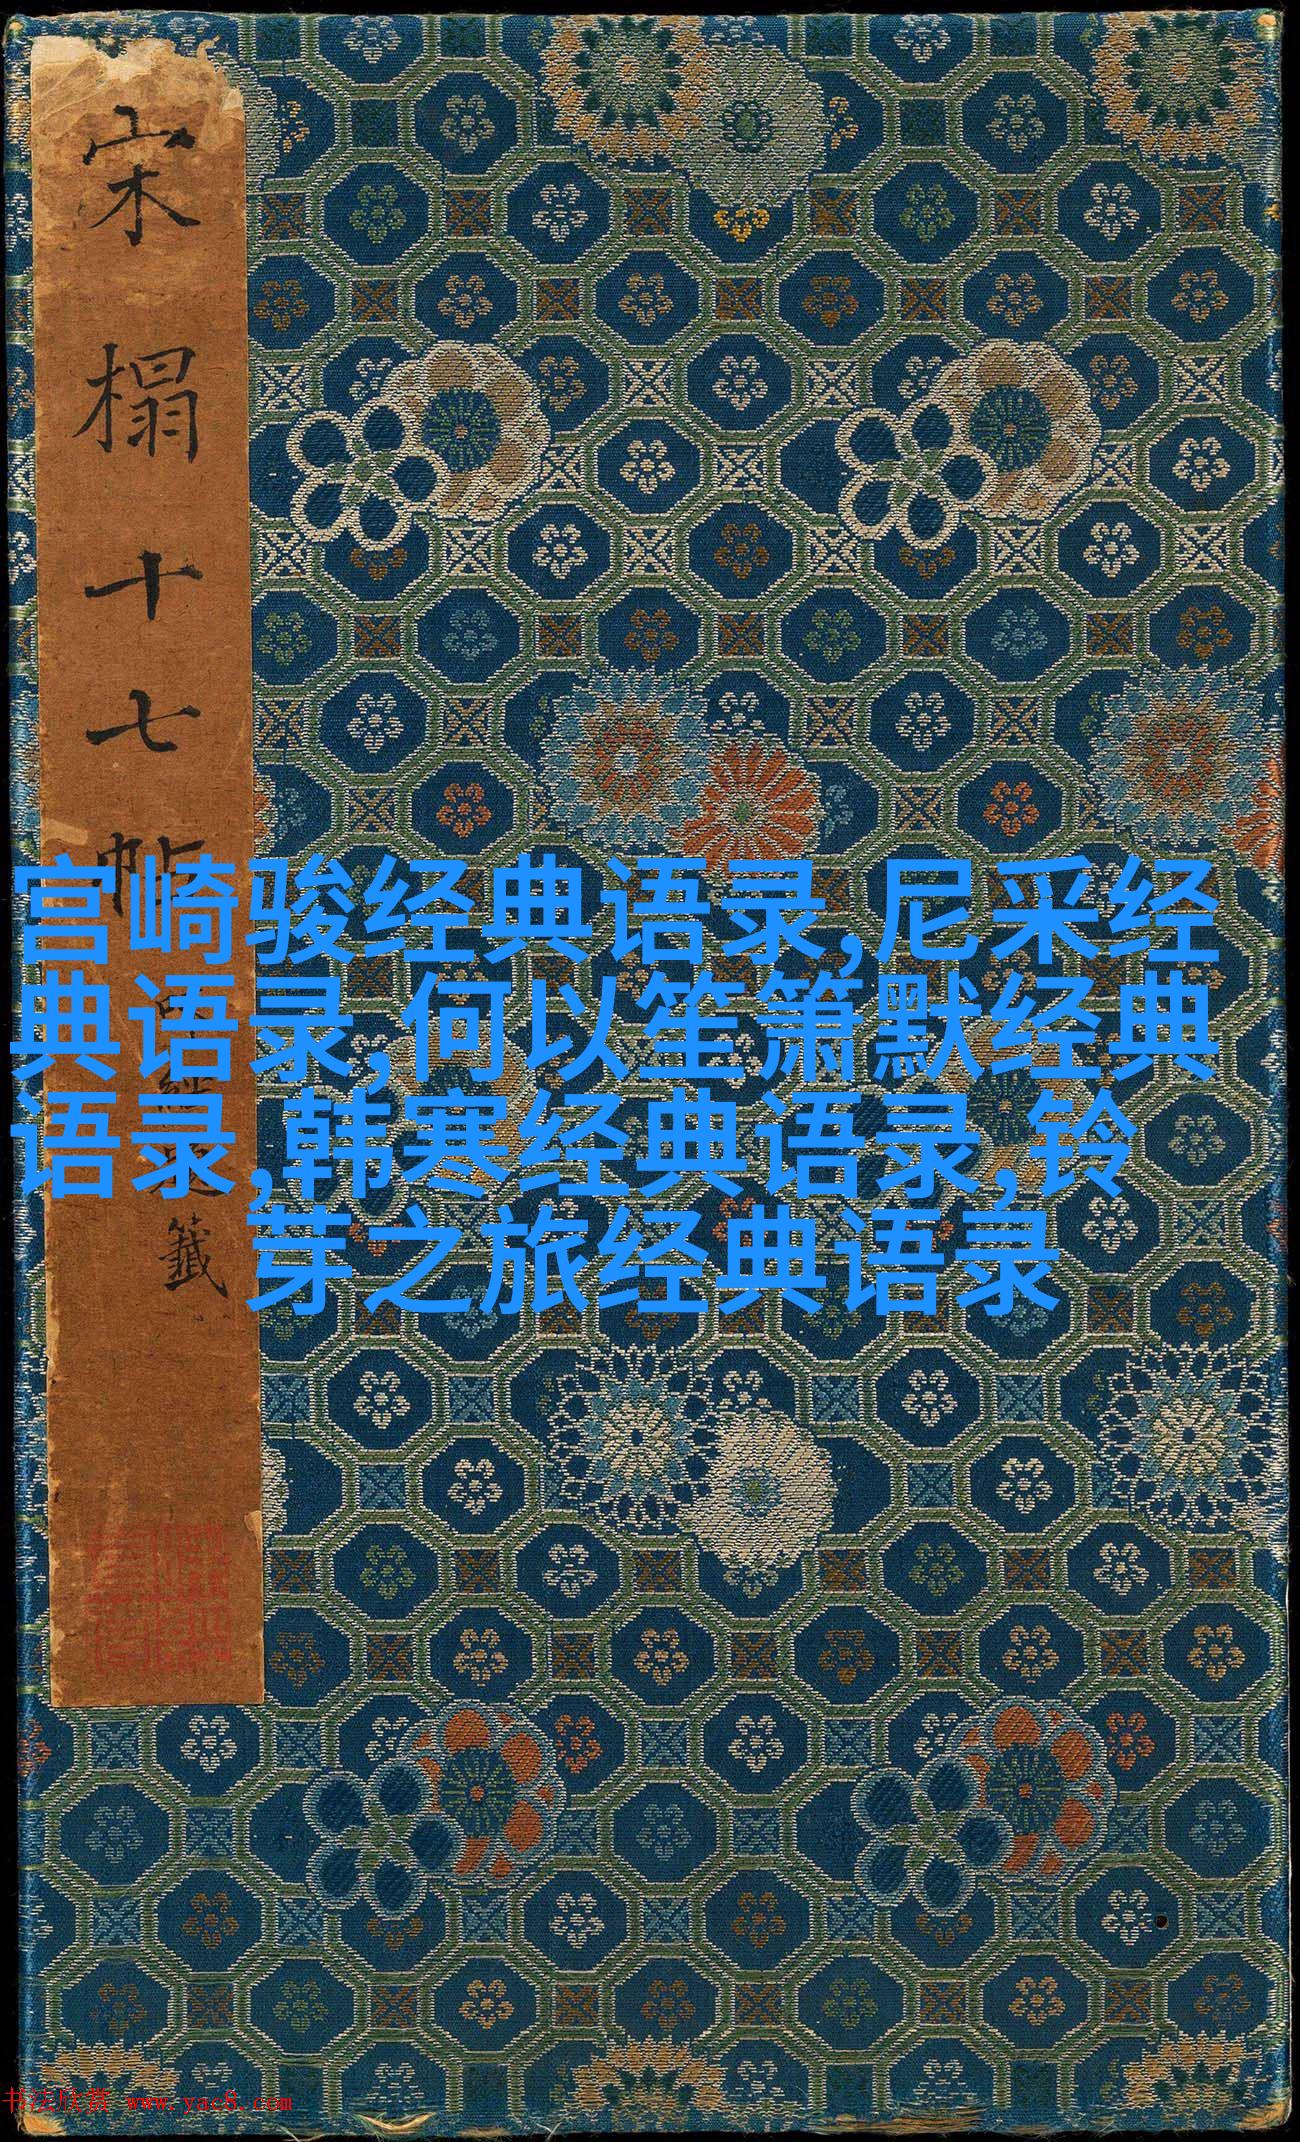 宋
榻
十
七
帖
籤
宫崎骏经典语录,尼采经
典语录,何以笙箫默经典
语录,韩寒经典语录,铃
芽之旅经典语录
书法欣赏 www.yac8.com